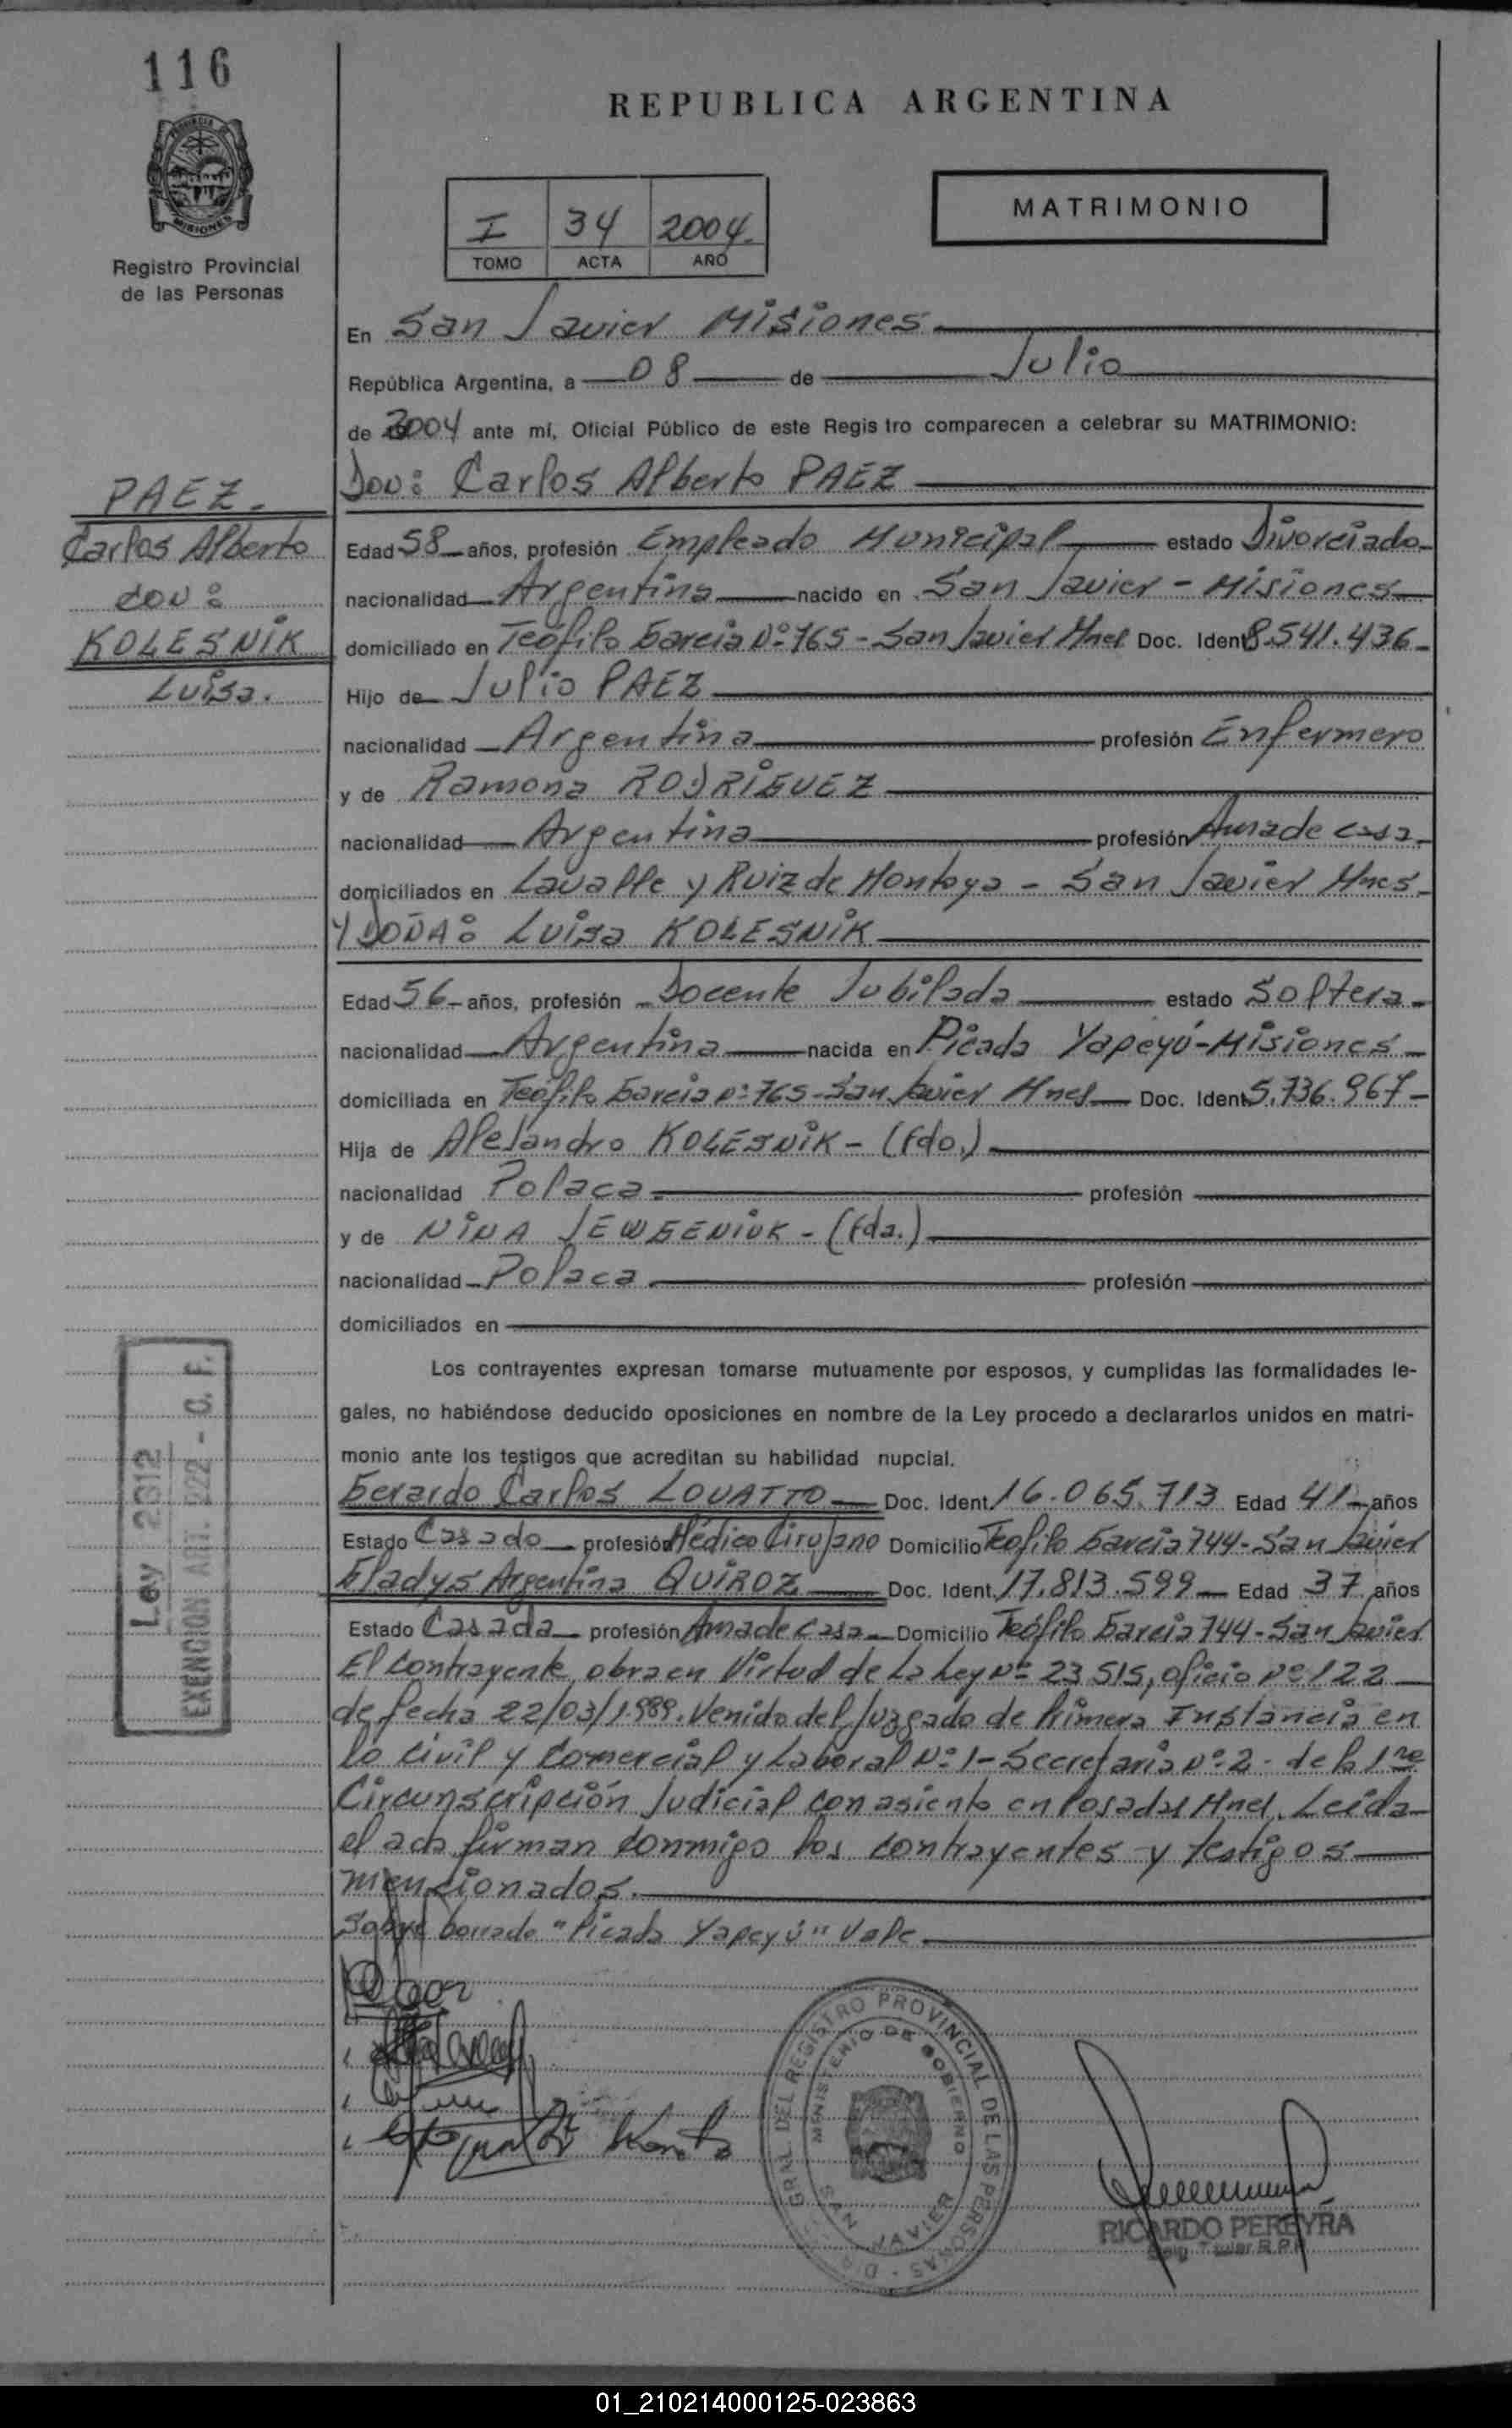 116
REPUBLICA ARGENTINA
PROVINCIA DE
MISIONES
Registro Provincial
de las Personas
I 34 2004
TOMO ACTA AÑO
MATRIMONIO
En San Javier Misiones
República Argentina, a 08 de Julio
de 2004 ante mí, Oficial Público de este Regis tro comparecen a celebrar su MATRIMONIO:
PAEZ.
Carlos Alberto
con:
KOLESNIK
Luisa.
Don: Carlos Alberto PAEZ
Edad 58 años, profesión Empleado Municipal estado Divorciado
nacionalidad Argentina nacido en San Javier - Misiones
domiciliado en Teófilo Garcia Nº 765 - San Javier Mnes Doc. Ident 8.541.436
Hijo de Julio PAEZ
nacionalidad Argentina profesión Enfermero
y de Ramona RODRIGUEZ
nacionalidad Argentina profesión Ama de casa
domiciliados en Lavalle y Ruiz de Montoya - San Javier Mnes
Y DOÑA: Luisa KOLESNIK
Edad 56 años, profesión Docente Jubilada estado Soltera
nacionalidad Argentina nacida en Picada Yapeyú-Misiones
domiciliada en Teófilo Garcia nº 765-San Javier Mnes Doc. Ident 5.736.967
Hija de Alejandro KOLESNIK - (fdo.)
nacionalidad Polaca profesión
y de NINA JEWGENIUK - (fda.)
nacionalidad Polaca profesión
domiciliados en
Los contrayentes expresan tomarse mutuamente por esposos, y cumplidas las formalidades le-
gales, no habiéndose deducido oposiciones en nombre de la Ley procedo a declararlos unidos en matri-
monio ante los testigos que acreditan su habilidad nupcial.
Gerardo Carlos LOVATTO Doc. Ident. 16.065.713 Edad 41 años
Estado Casado profesión Médico Cirujano Domicilio Teofilo Garcia 744-San Javier
Gladys Argentina QUIROZ Doc. Ident. 17.813.599 Edad 37 años
Estado Casada profesión Ama de casa Domicilio Teófilo Garcia 744-San Javier
El contrayente obra en Virtud de la Ley Nº 23.515, oficio Nº 122
de fecha 22/03/1.989. Venido del Juzgado de Primera Instancia en
lo Civil y Comercial y Laboral Nº 1-Secretaria Nº 2 de la 1ra
Circunscripción Judicial con asiento en Posadas Mnes. Leida
el acta firman conmigo los contrayentes y testigos
mencionados.
Sobre borrado "Picada Yapeyú" Vale.
Ley 2312
EXENCION ART. 222 - C. F.
DIR. GRAL. DEL REGISTRO PROVINCIAL DE LAS PERSONAS
MINISTERIO DE GOBIERNO
SAN JAVIER
RICARDO PEREYRA
01_210214000125-023863